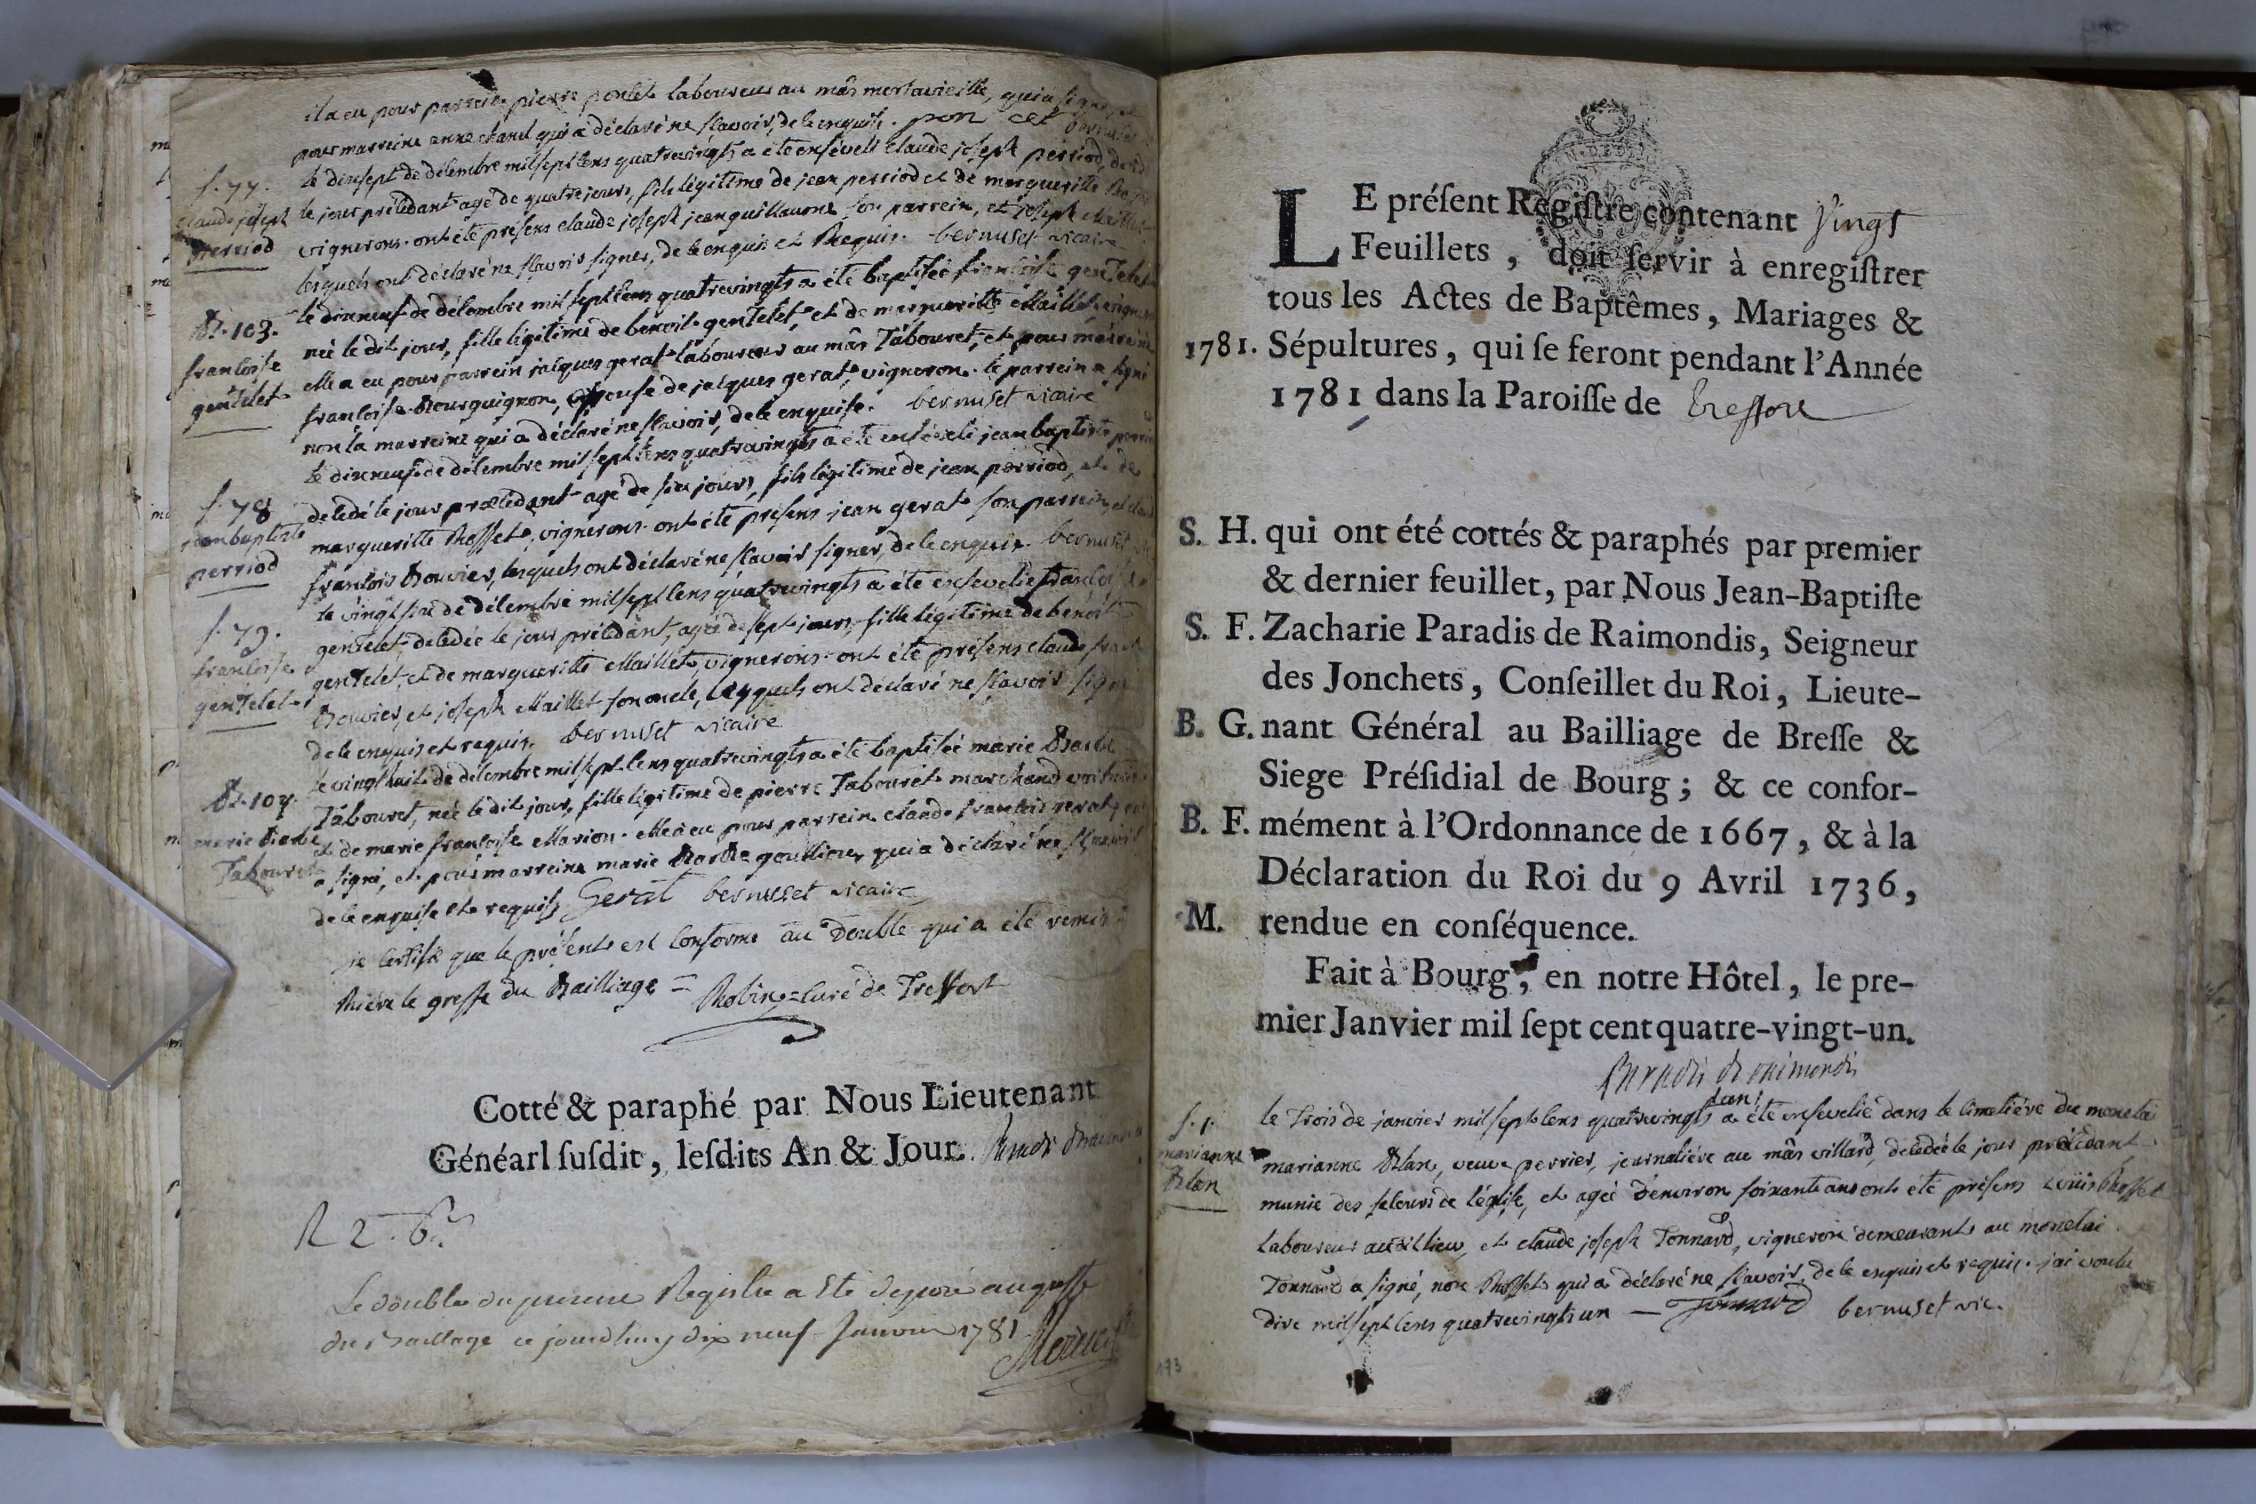 il a eu pour parrein pierre poulet laboureur au mâs mortavieille, qui a signé,
pour marreine anne chanel qui a déclaré ne sçavoir, de ce enquise.
le dixsept de décembre mil sept cens quatrevingts a été enséveli claude joseph perriod, décédé
f. 77.
claude joseph
perriod
le jour précédant agé de quatre jours, fils légitime de jean perriod et de margueritte
vignerons. ont été présens claude joseph jean guillaume son parrein, et joseph Maillet
lesquels ont déclaré ne sçavoir signer, de ce enquis et Requis. bernuset vicaire
le dixneuf de décembre mil sept cens quatrevingts a été baptisée françoise gentelet
B. 103.
françoise
gentelet
née le dit jour, fille légitime de benoit gentelet, et de margueritte Maillet
elle a eu pour parrein jacques gerat laboureur au mâs Tabouret, et pour marreine
françoise Bourguignon, épouse de jacques gerat vigneron. le parrein a signé
non la marreine qui a déclaré ne sçavoir, de ce enquise. bernuset vicaire
le dixneuf de décembre mil sept cens quatrevingts a été enséveli jean baptiste perriod
f. 78
jean baptiste
perriod
décedé le jour précédant agé de six jours, fils légitime de jean perriod, et de
margueritte Rosset, vignerons. ont été présens jean gerat son parrein, et
françois Bouvier, lesquels ont déclaré ne sçavoir signer, de ce enquis. bernuset
le vingt six de décembre mil sept cens quatrevingts a été ensevelie françoise
f. 79.
françoise
gentelet
gentelet, decedée le jour précédant, agée de sept jours, fille légitime de benoit
gentelet, et de margueritte Maillet, vignerons. ont été présens claude
Bouvier, et joseph Maillet son oncle, lesquels ont déclaré ne sçavoir signer
de ce enquis et requis. bernuset vicaire
le vingt huit de décembre mil sept cens quatrevingts a été baptisée marie Barbe
B. 104.
marie Barbe
Tabouret
Tabouret, née le dit jour, fille légitime de pierre Tabouret marchand
et de marie françoise Marion. elle a eu pour parrein claude françois gerat qui
a signé, et pour marreine marie Barbe goullion, qui a déclaré ne sçavoir
de ce enquise et requise Gerat bernuset vicaire
je certifie que le présent est conforme au Double qui a été remis
Riere le greffe du Bailliage = Robin = curé de Treffort
Cotté & paraphé par Nous Lieutenant
Généarl susdit, lesdits An & Jour.
R 2
Le double du présent Registre a été deposé au greffe
du Baillage ce jourdhuy dix neuf Janvier 1781
LE présent Registre contenant Vingt
Feuillets, doit servir à enregistrer
tous les Actes de Baptêmes, Mariages &
1781. Sépultures, qui se feront pendant l'Année
1781 dans la Paroisse de Treffort
S. H. qui ont été cottés & paraphés par premier
& dernier feuillet, par Nous Jean-Baptiste
S. F. Zacharie Paradis de Raimondis, Seigneur
des Jonchets, Conseillet du Roi, Lieute-
B. G. nant Général au Bailliage de Bresse &
Siege Présidial de Bourg; & ce confor-
B. F. mément à l'Ordonnance de 1667, & à la
Déclaration du Roi du 9 Avril 1736,
M. rendue en conséquence.
Fait à Bourg, en notre Hôtel, le pre-
mier Janvier mil sept cent quatre-vingt-un.
Paradis de Raimondis
f. 1.
marianne
Blan
le Trois de janvier mil sept cens quatrevingts a été ensevelie dans le cimetiére du monetai
marianne Blan, veuve perrier, journaliére au mâs villard, decedée le jour précédant
munie des secours de l'église, et agée d'environ soixante ans ont été présens Louis Rosset
laboureur audit lieu, et claude joseph Tonnard, vigneron demeurants au monetai
Tonnard a signé, non Rosset qui a déclaré ne sçavoir, de ce enquis et requis. j'ai voulu
dire mil sept cens quatrevingts un — Tonnard bernuset vic.